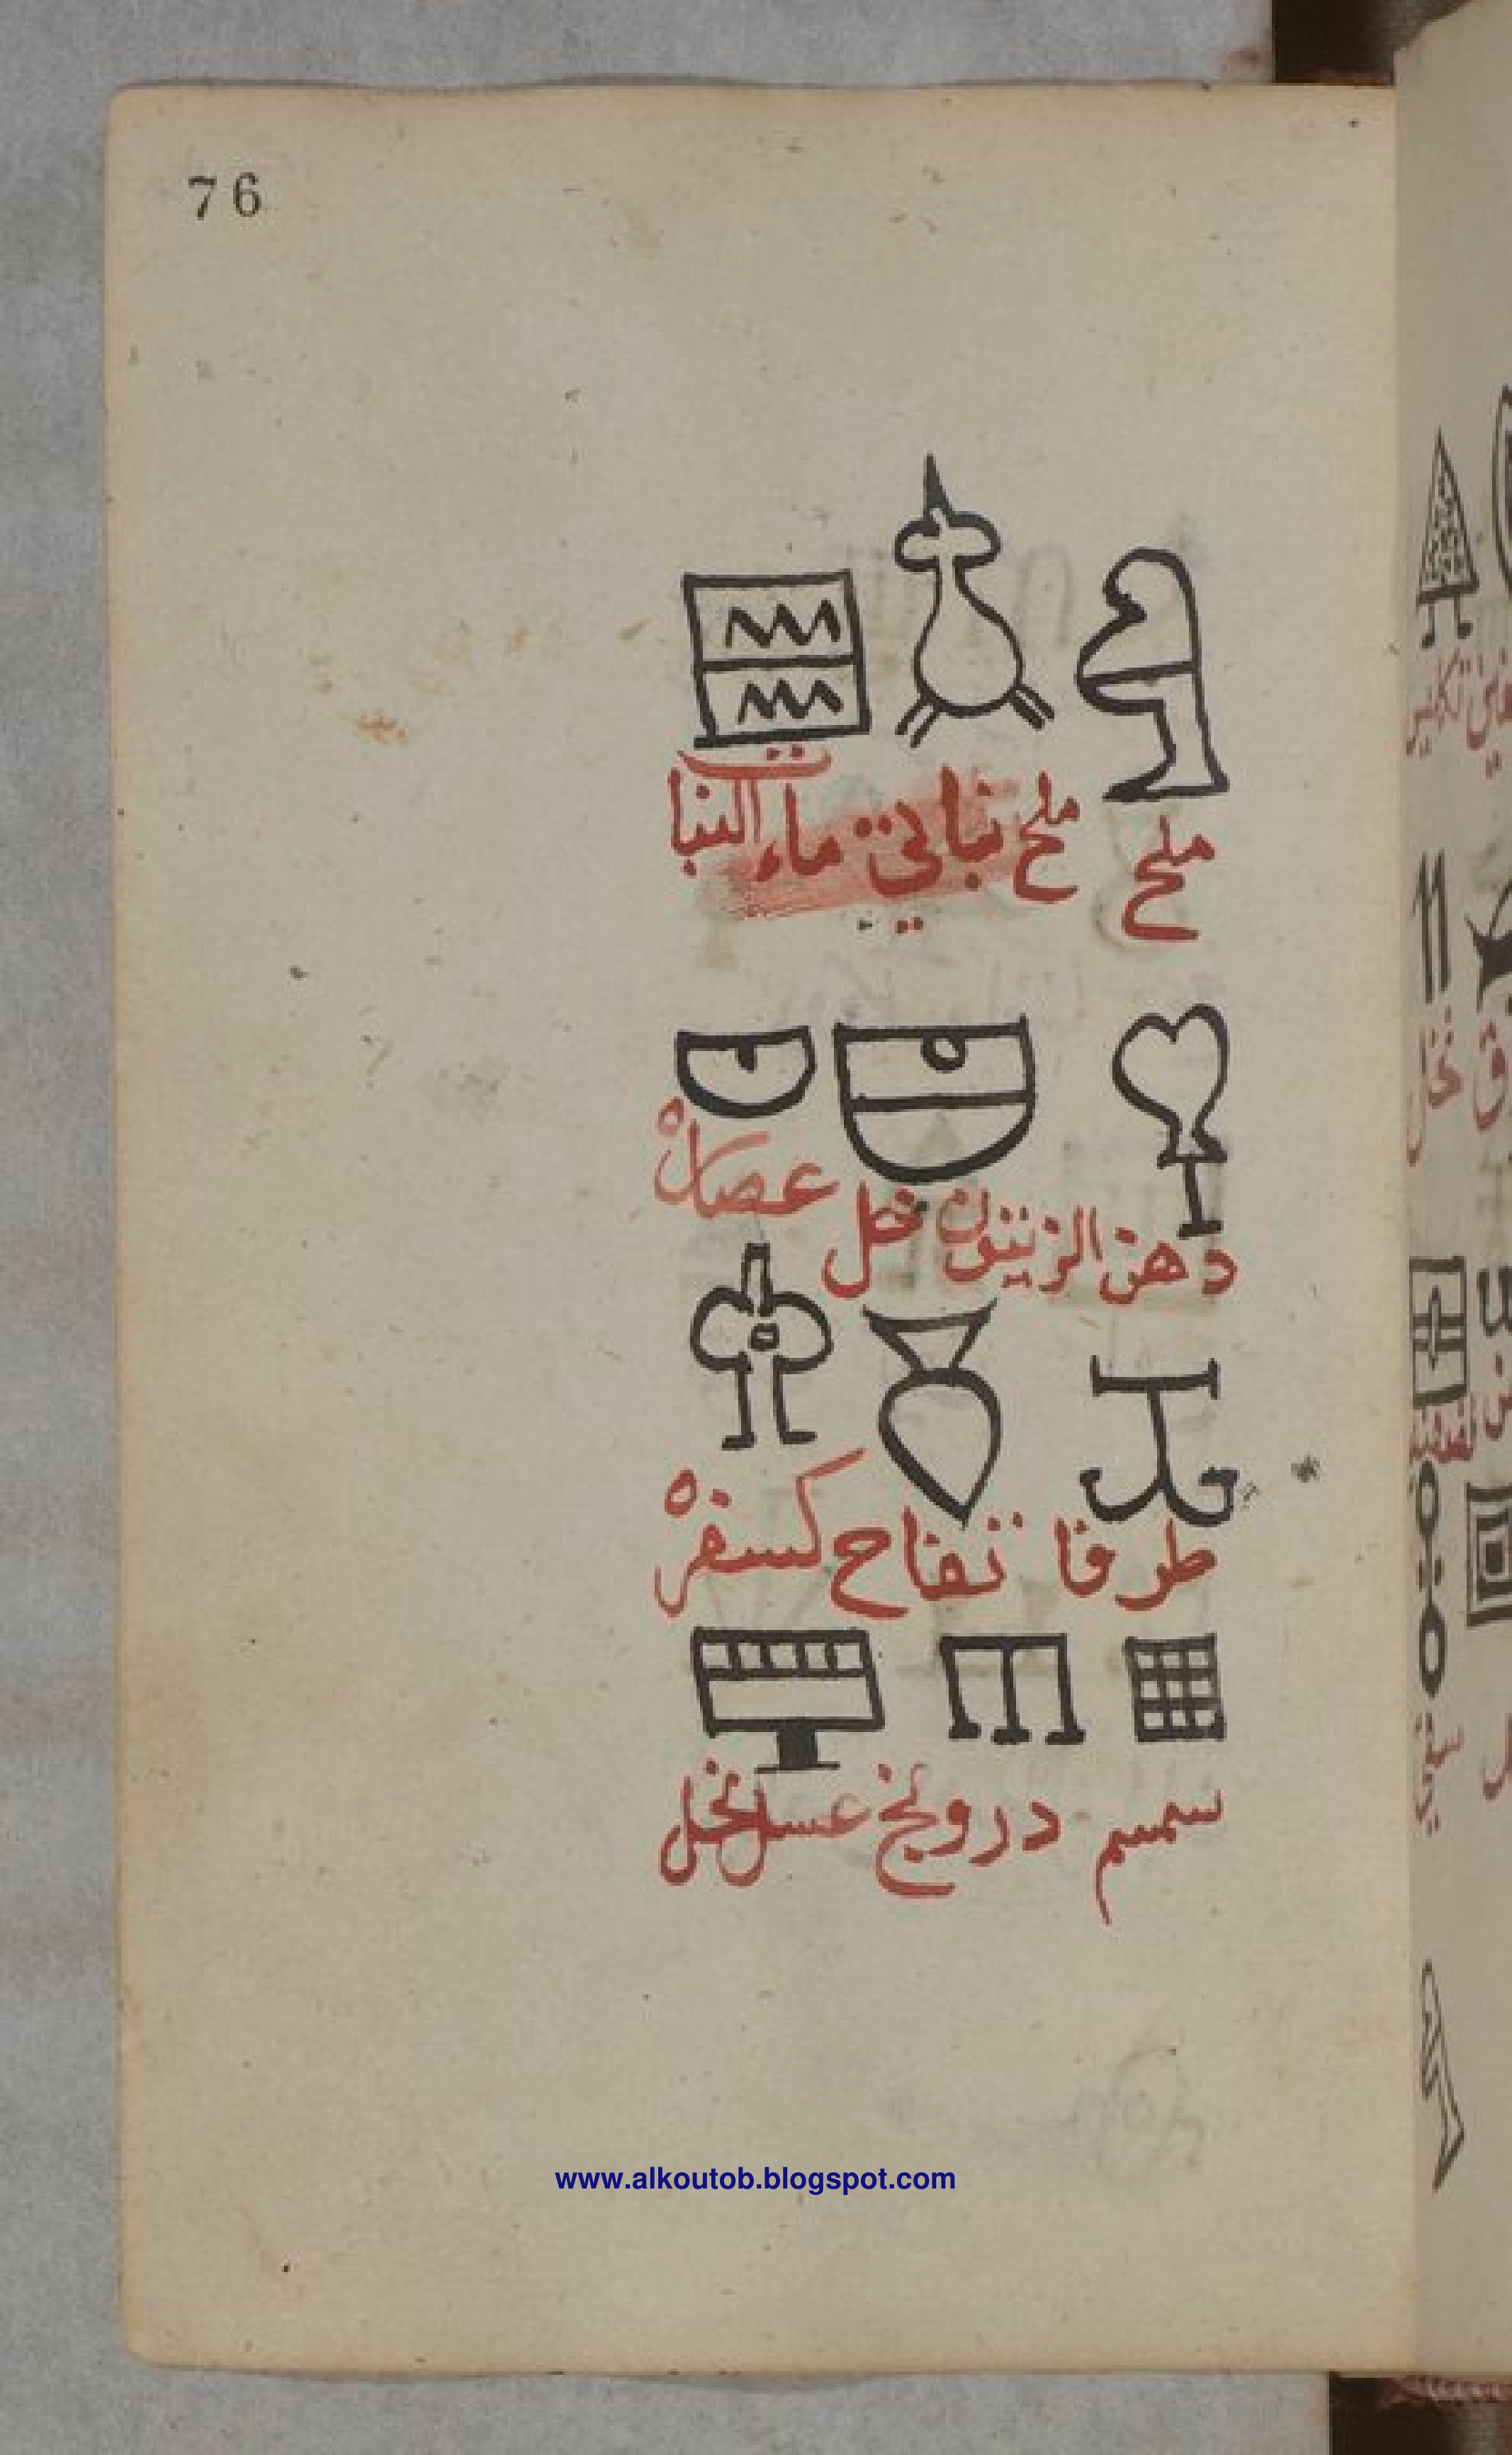 76
ملح ملح نباتي ماء النبات
دهن الزيتون خل عصاره
طرفا تفاح كسفره
سمسم درونج عسل نحل
www.alkoutob.blogspot.com